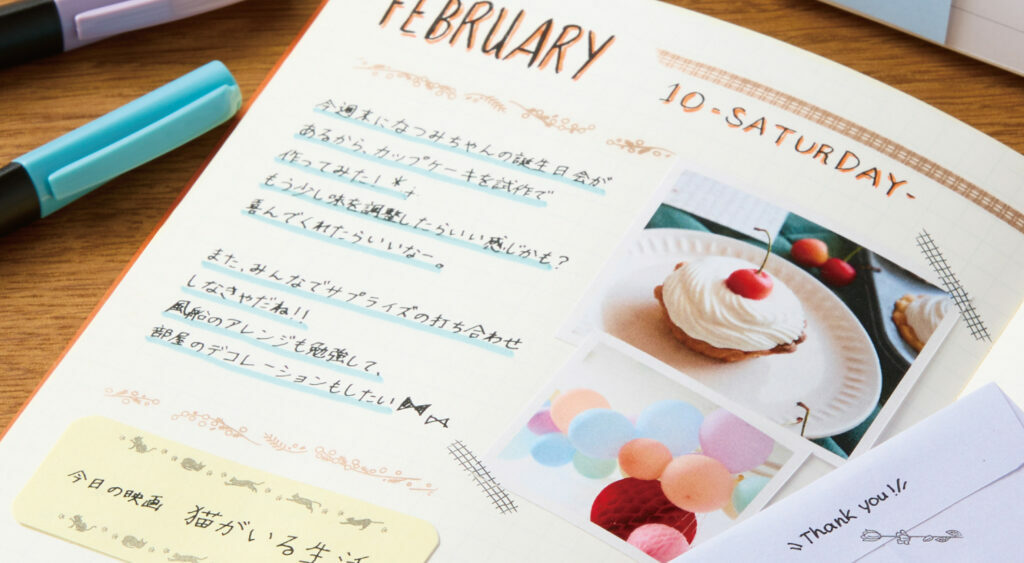 FEBRUARY
10-SATURDAY-
今週末になつみちゃんの誕生日会が
あるから、カップケーキを試作で
作ってみた!
もう少し味を調整したらいい感じかも?
喜んでくれたらいいなー。
また、みんなでサプライズの打ち合わせ
しなきゃだね!!
風船のアレンジも勉強して、
部屋のデコレーションもしたい
今日の映画 猫がいる生活
Thank you!